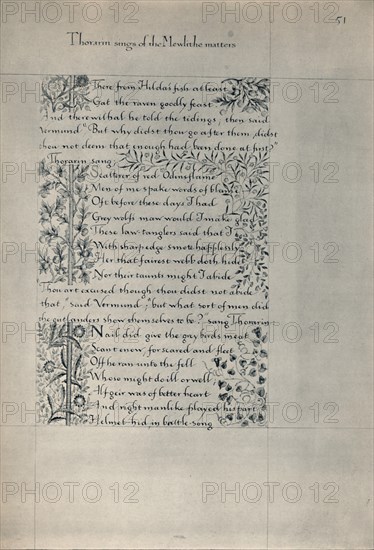 51
Thorarin sings of the Mewlithe matters
There from Hilda's fish at least
Gat the raven goodly feast
And therewithal he told the tidings; then said
Vermund "But why didst thou go after them, didst
thou not deem that enough had been done at first?"
Thorarin sang:
Scatterer of red Odinsflame
Men of me spake words of blame
Oft before these days I had
Grey wolf's maw would I make glad
These law-tanglers said that I
With sharp edge smote hapflessly
Her that fairest webb doth hide
Nor their taunts might I abide
Thou art excused though thou didst not abide
that," said Vermund; "but what sort of men did
the outlanders show themselves to be?" sang Thorarin
Nail did give the grey birds meat
Scant enow, for scared and fleet
Off he ran unto the fell
Whoso might do ill or well
Alfgeir was of better heart
And right manlike played his part
Helmet-hid in battle-song
PHOTO 12